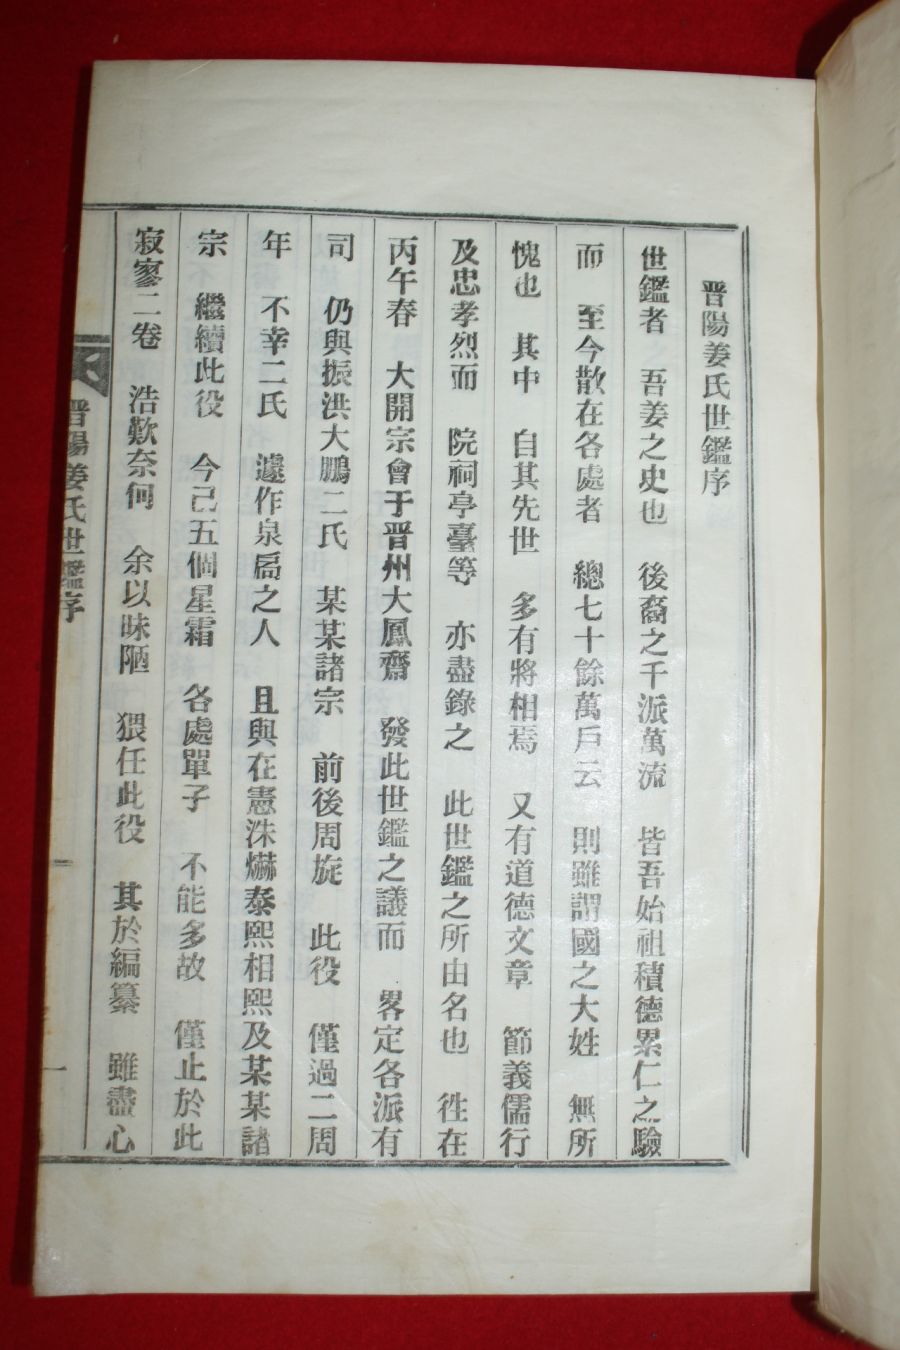 晋陽姜氏世鑑序
世鑑者 吾姜之史也 後裔之千派萬流 皆吾始祖積德累仁之驗
而 至今散在各處者 總七十餘萬戶云 則雖謂國之大姓 無所
愧也 其中 自其先世 多有將相焉 又有道德文章 節義儒行
及忠孝烈而 院祠亭臺等 亦盡錄之 此世鑑之所由名也 徃在
丙午春 大開宗會于晋州大鳳齋 發此世鑑之議而 畧定各派有
司 仍與振洪大鵬二氏 某某諸宗 前後周旋 此役 僅過二周
年 不幸二氏 遽作泉扃之人 且與在憲洙爀泰熙相熙及某某諸
宗 繼續此役 今己五個星霜 各處單子 不能多故 僅止於此
寂寥二卷 浩歎奈何 余以昧陋 猥任此役 其於編纂 雖盡心
晋陽姜氏世鑑序
一